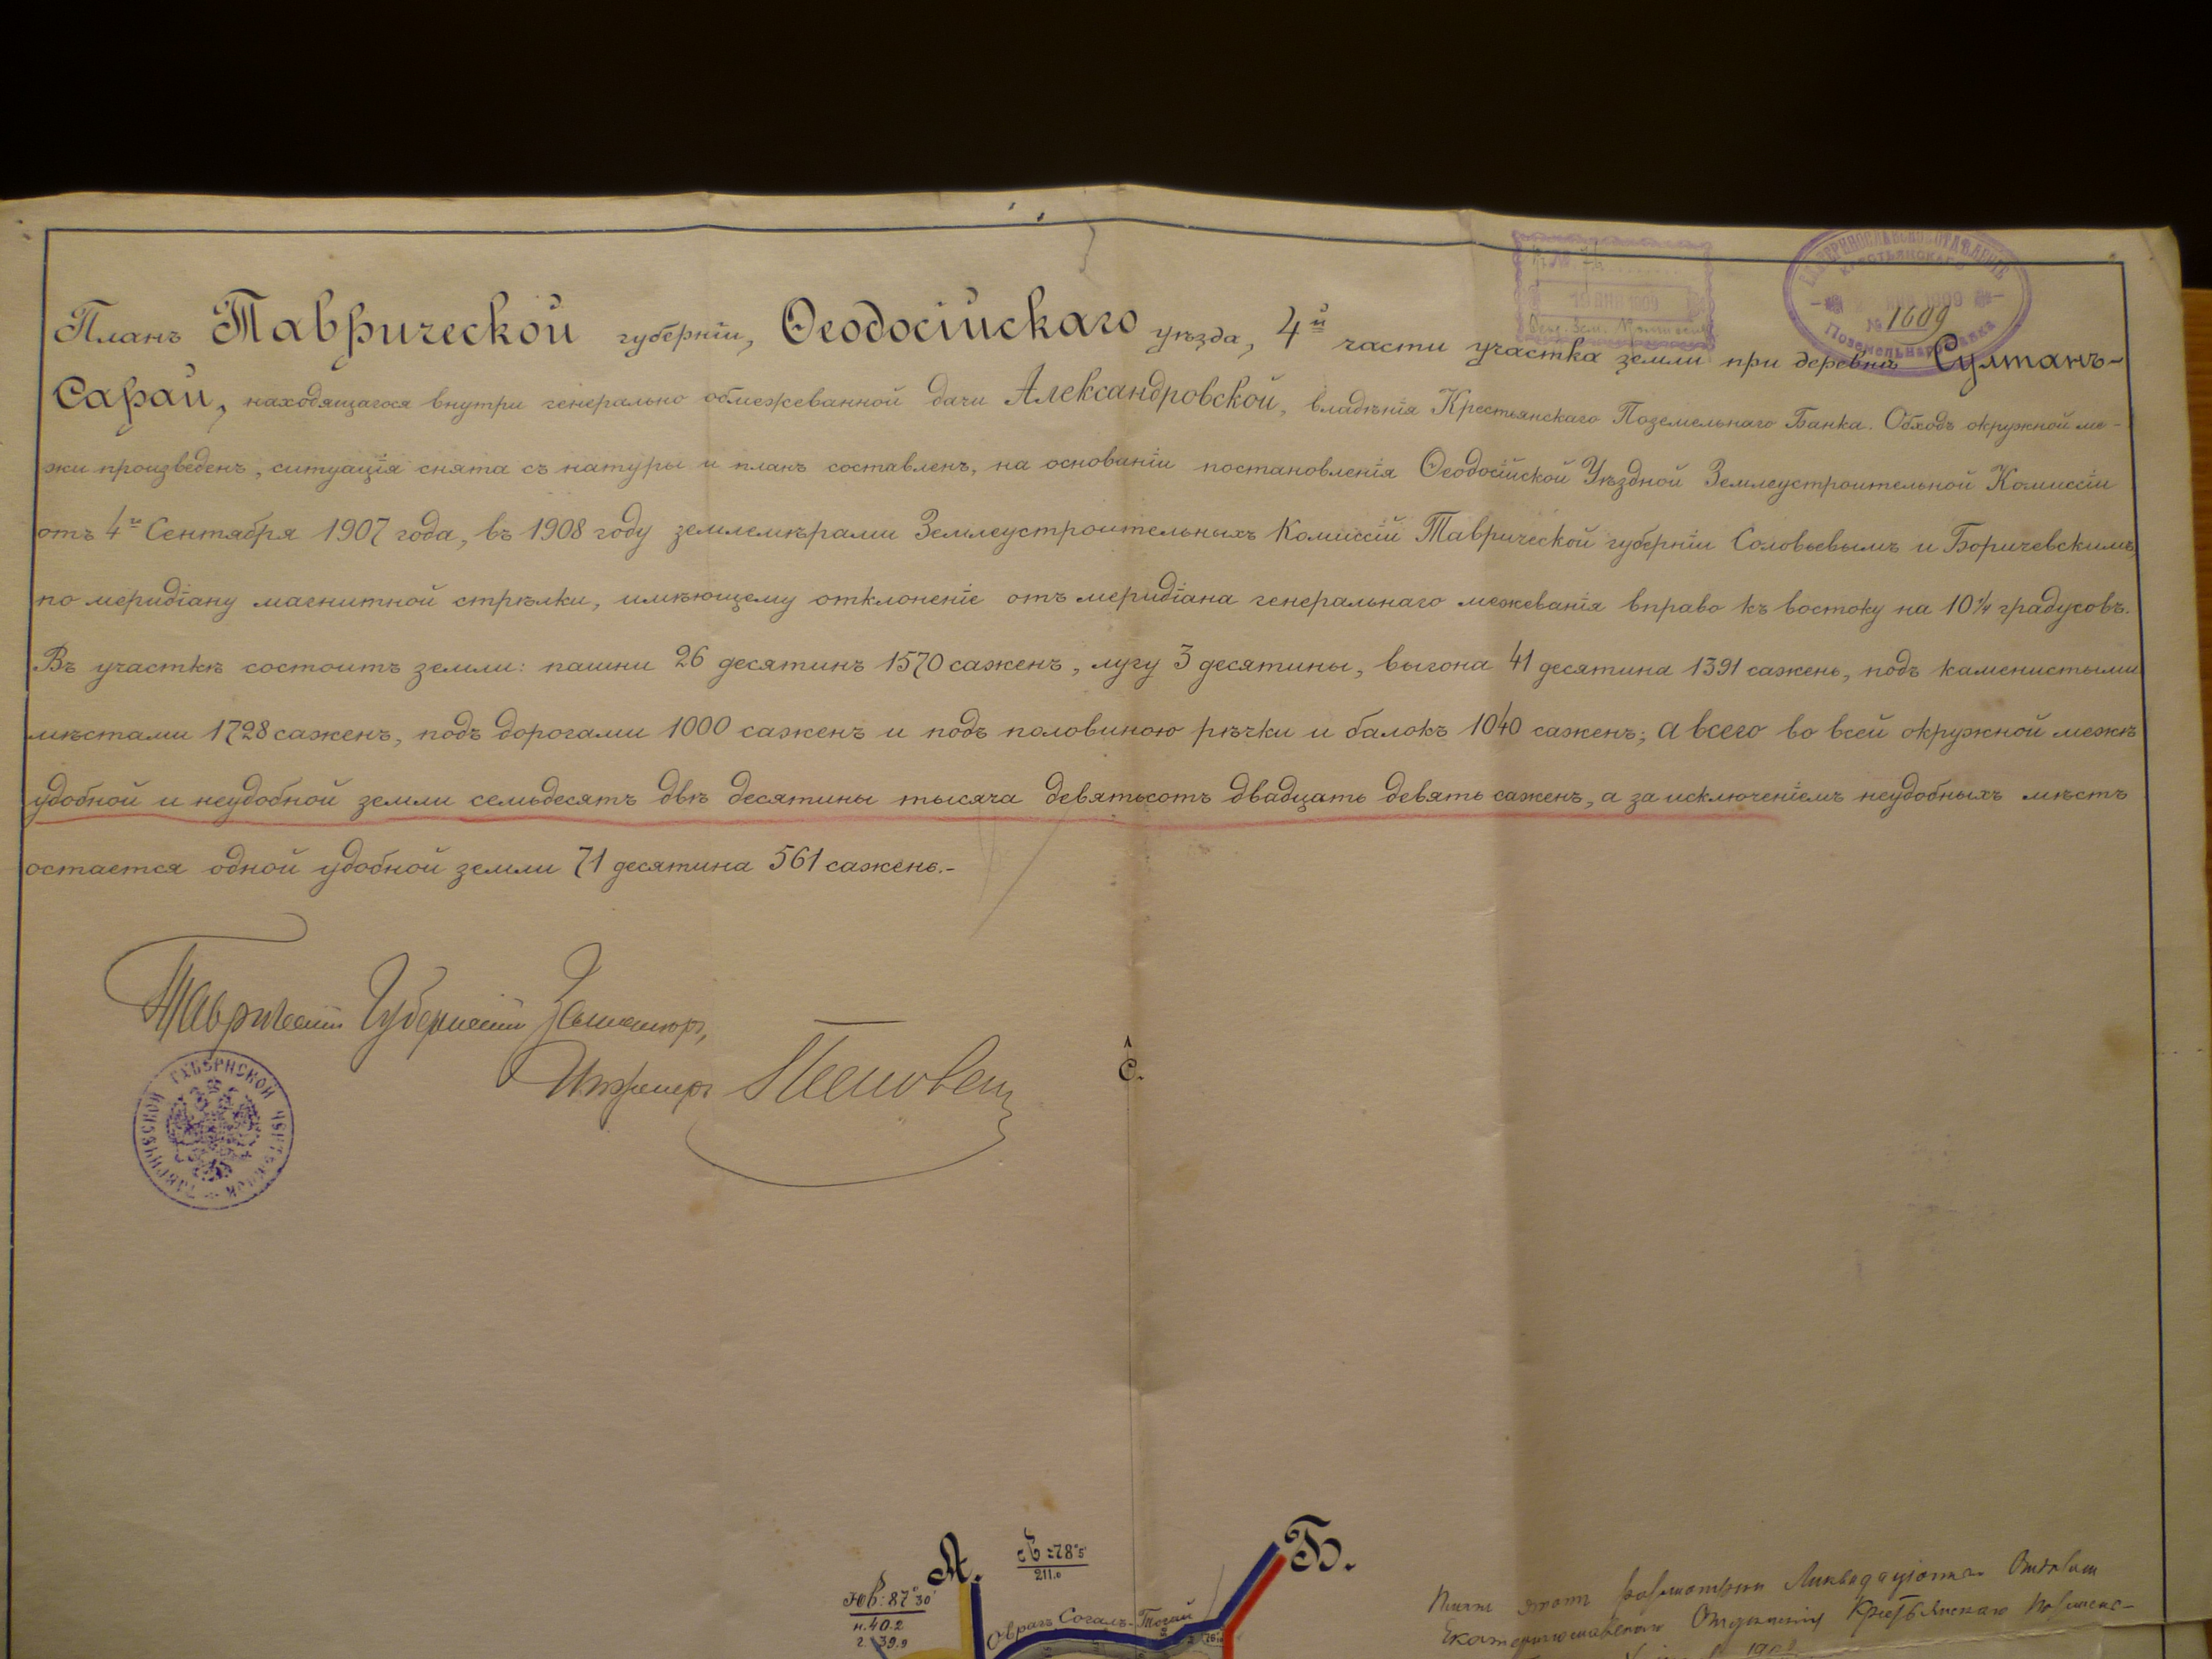 Планъ Таврической губерніи, Ѳеодосійскаго уѣзда, 4й части участка земли при деревнѣ Султанъ-
Сарай, находящагося внутри генерально обмежеванной дачи Александровской, владѣнія Крестьянскаго Поземельнаго Банка. Обходъ окружной ме-
жи произведенъ, ситуація снята съ натуры и планъ составленъ, на основаніи постановленія Ѳеодосійской Уѣздной Землеустроительной Комиссіи
отъ 4го Сентября 1907 года, въ 1908 году землемѣрами Землеустроительныхъ Комиссій Таврической губерніи Соловьевымъ и Боричевскимъ,
по меридіану магнитной стрѣлки, имѣющему отклоненіе отъ меридіана генеральнаго межеванія вправо къ востоку на 10¼ градусовъ.
Въ участкѣ состоитъ земли: пашни 26 десятинъ 1570 саженъ, лугу 3 десятины, выгона 41 десятина 1391 сажень, подъ каменистыми
мѣстами 1728 саженъ, подъ дорогами 1000 саженъ и подъ половиною рѣчки и балокъ 1040 саженъ; а всего во всей окружной межѣ
удобной и неудобной земли семьдесятъ двѣ десятины тысяча девятьсотъ двадцать девять саженъ, а за исключеніемъ неудобныхъ мѣстъ
остается одной удобной земли 71 десятина 561 сажень.-
19 ЯНВ 1909
ЕКАТЕРИНОСЛАВСКОЕ ОТДѢЛЕНІЕ
КРЕСТЬЯНСКАГО
1909
№ 1609
Поземельнаго Банка
Таврическій Губернскій Землемѣръ,
Инженеръ
ТАВРИЧЕСКОЙ ГУБЕРНСКОЙ ЧЕРТЕЖНОЙ
С.
А.
Б.
СВ:78°5'
211.0
ЮВ:87°30'
н.40.2
г.39.9
Оврагъ Согалъ-Тогай
Планъ этотъ разсмотрѣнъ Ликвидаціоннымъ Отдѣломъ
Екатеринославскаго Отдѣленія Крестьянскаго Поземель-